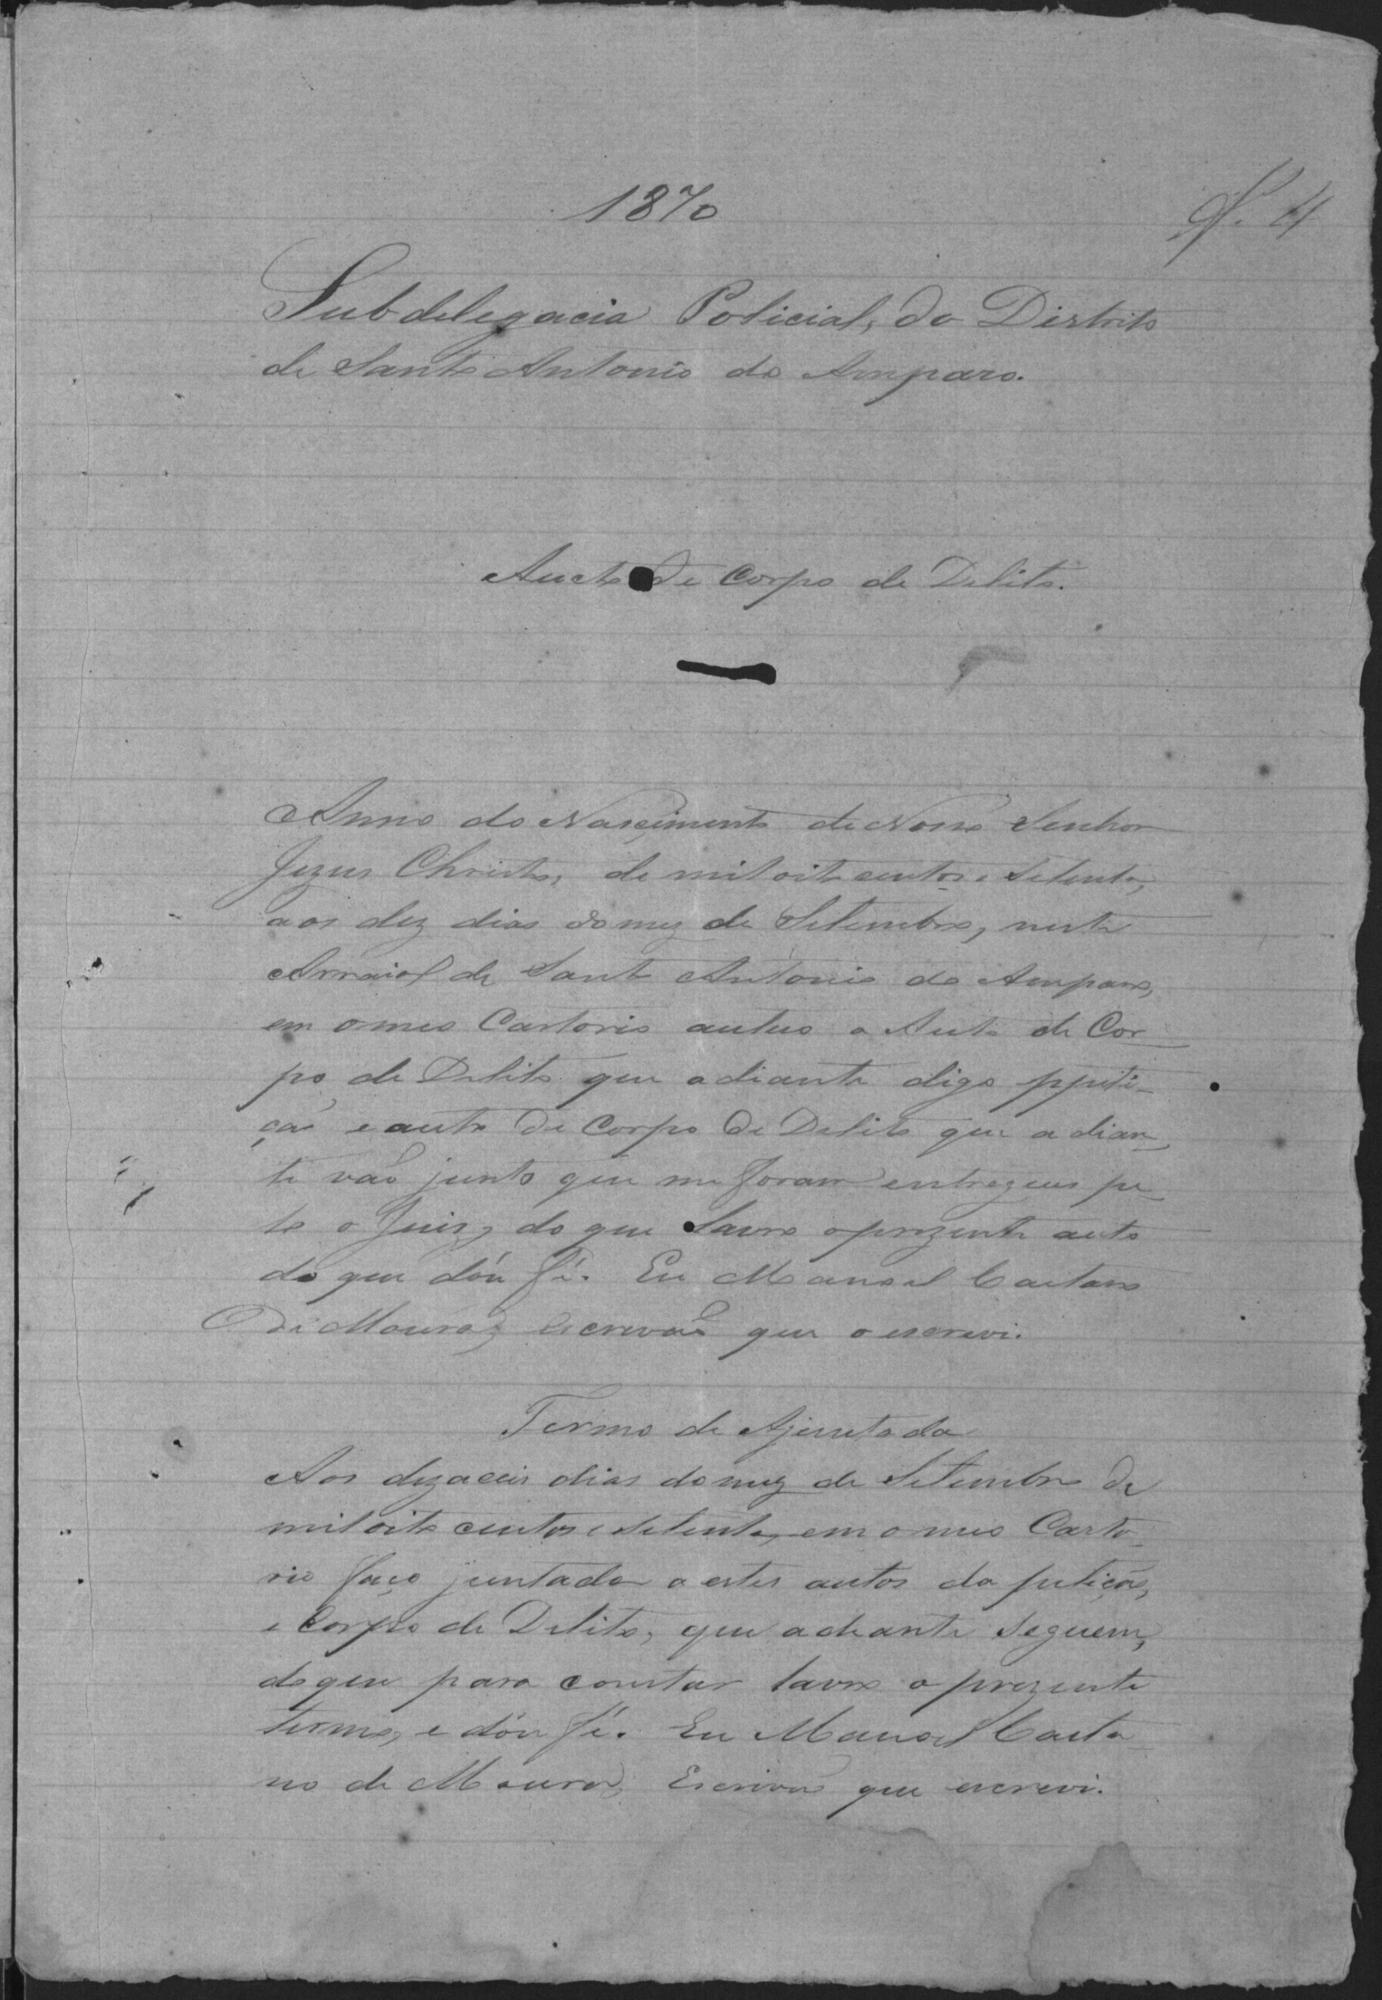 1870
fl. 4
Subdelegacia Policial, do Distrito
de Santo Antonio do Amparo.
Aucto de Corpo de Delito.
Anno do Nascimento de Nosso Senhor
Jezus Christo, de mil oito centos e Setenta,
aos dez dias do mez de Setembro, neste
Arraial de Santo Antonio do Amparo,
em o meo Cartorio autuo o Auto de Cor-
po de Delito que adiante digo ppeti-
ção e auto de Corpo de Delito que a dian-
te vão junto que me foram entregues pe-
lo o Juiz, do que Lavro o prezente auto
do que dóu fé. Eu Manoel Caetano
De Moura, escrevaõ que o escrevi.
Termo de Ajuntada
Aos dezaceis dias do mez de Setembro de
mil oito centos e Setenta, em o meo Carto-
rio faço juntada a estes autos da petição,
e Corpo de Delito, que adeante Seguem,
do que para constar lavro o prezente
termo, e dóu fé. Eu Manoel Caeta
no de Moura, Escrivaõ que escrevi.